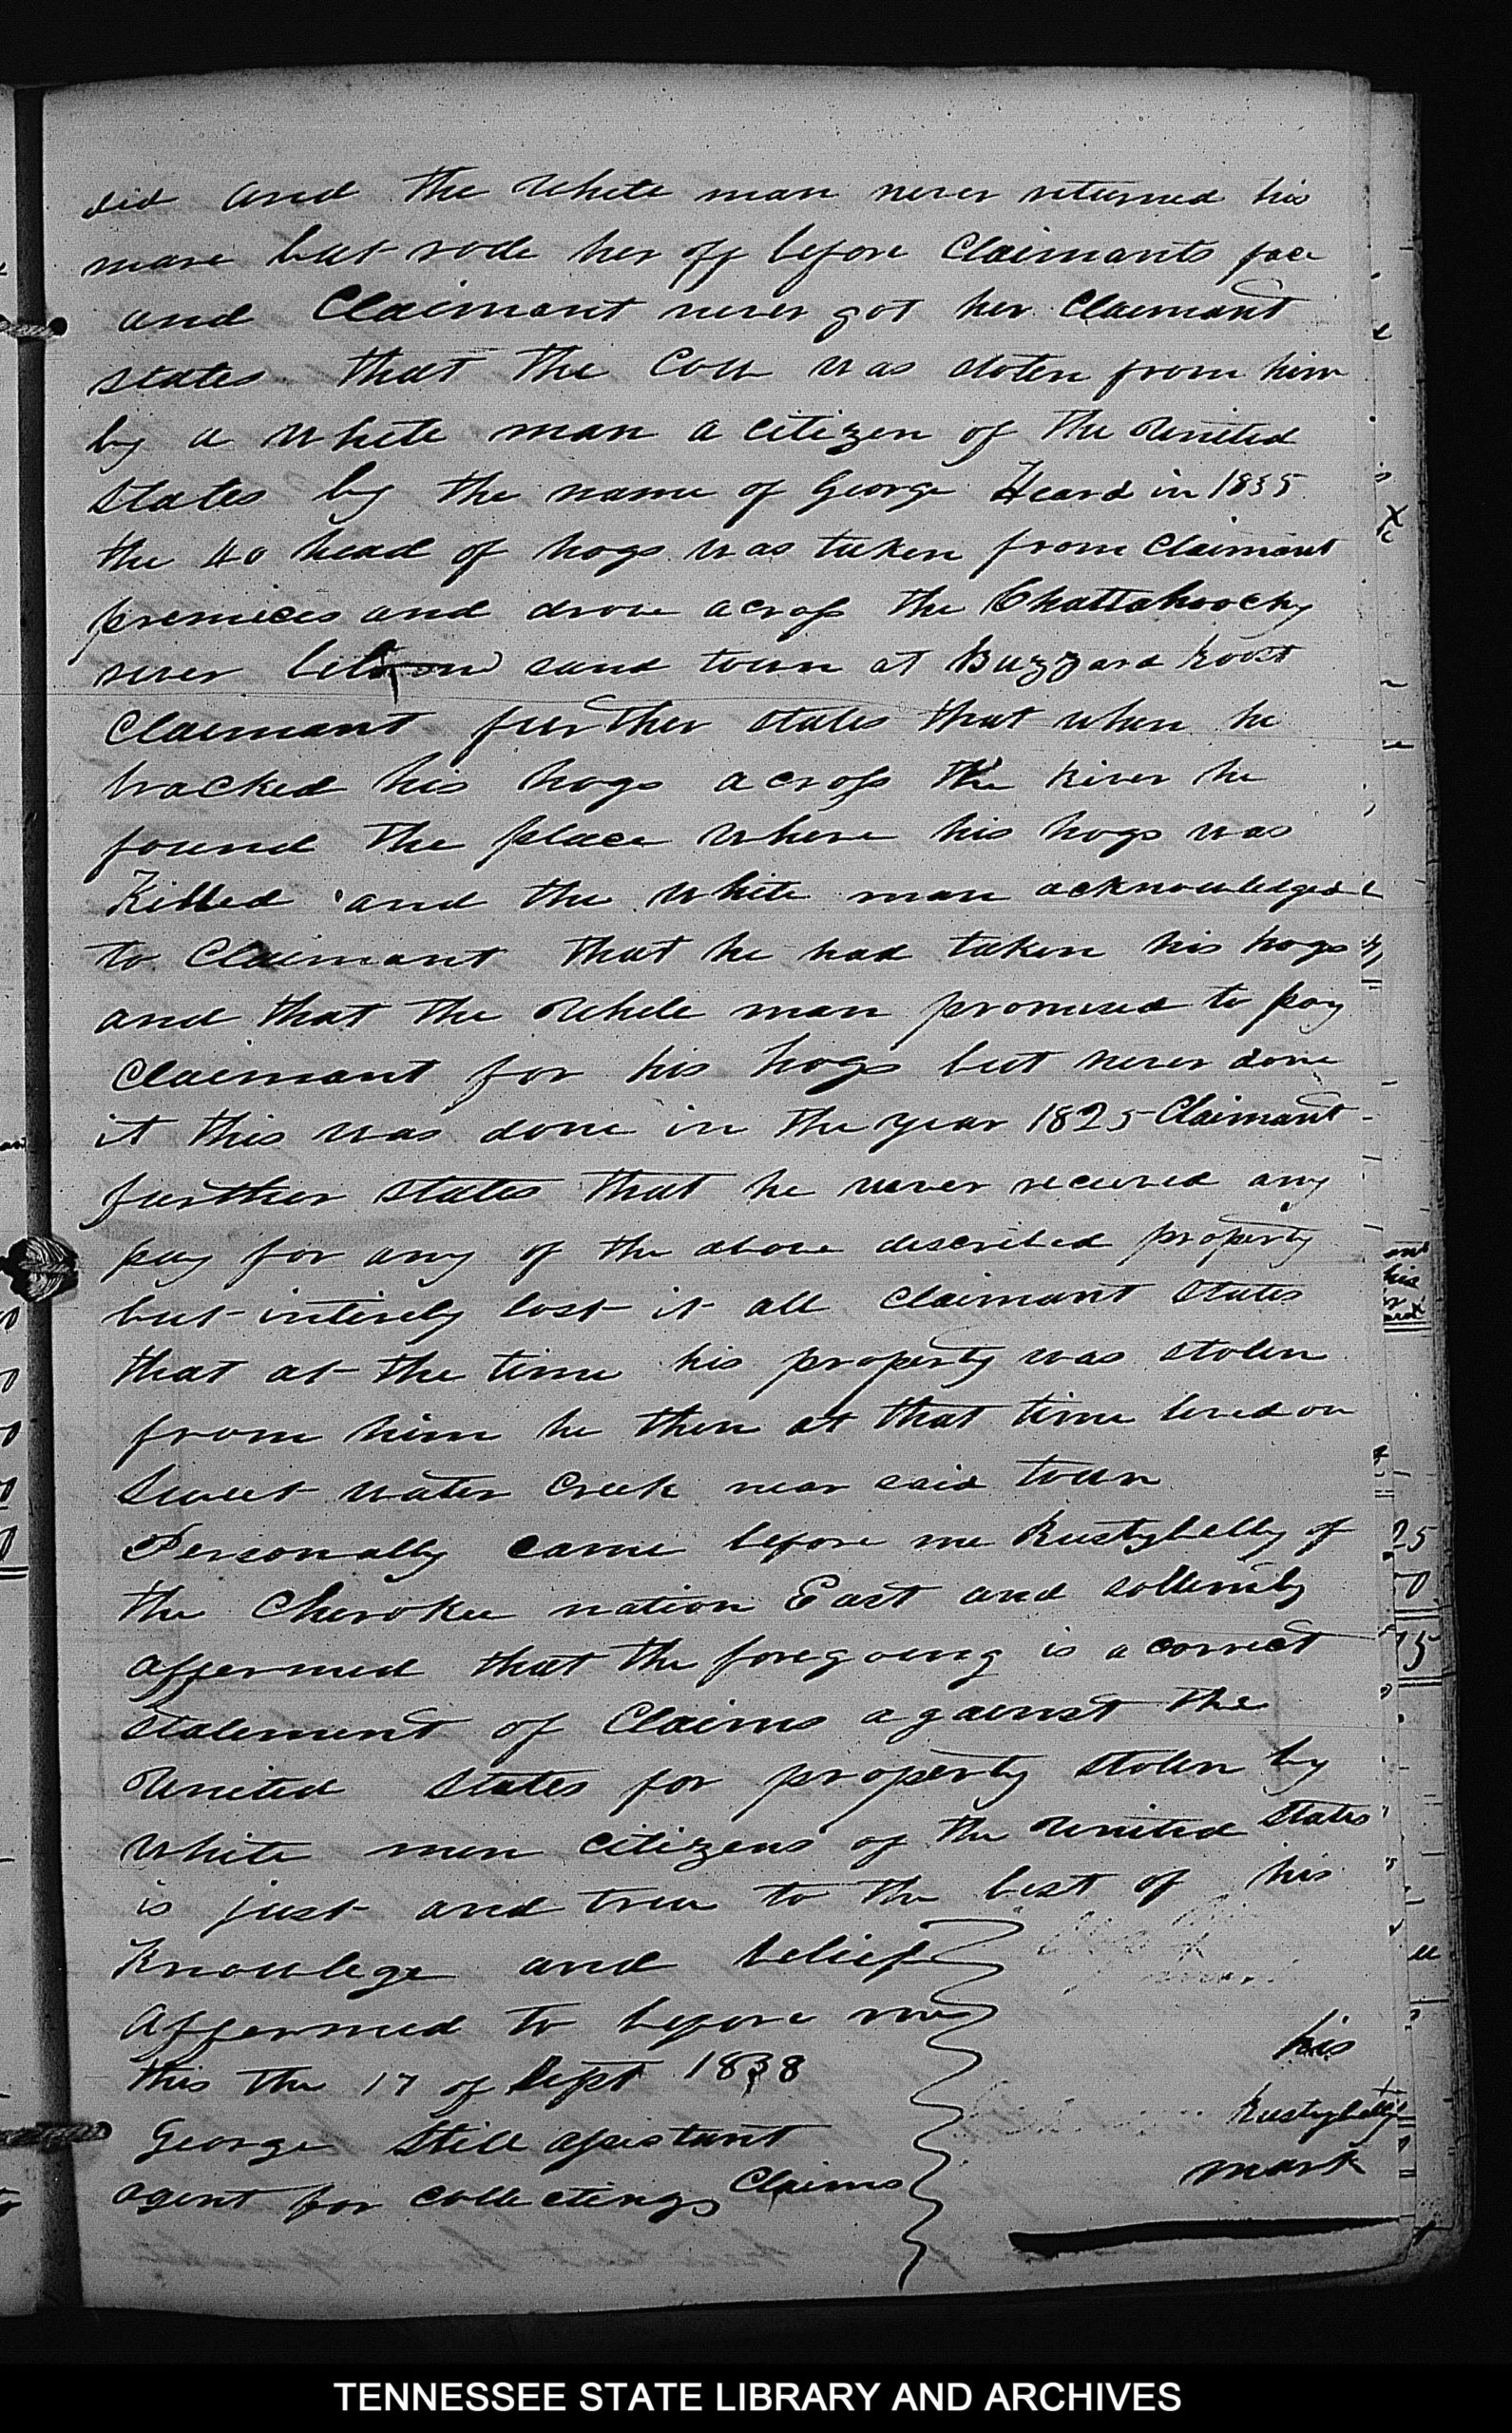 did and the White man never returned his
mare but rode her off before Claimants face
and Claimant never got her Claimant
states that the Colt was stolen from him
by a White man a citizen of the United
States by the name of George Heard in 1835
the 40 head of hogs was taken from Claimant
premices and drove across the Chattahoochy
river sand town at Buzzard Roost
Claimant further states that when he
tracked his hogs across the River he
found the place where his hogs was
Killed and the White man acknowledged
to Claimant that he had taken his hogs
and that the White man promised to pay
Claimant for his hogs but never done
it this was done in the year 1825 Claimant
further states that he never received any
pay for any of the above described property
but intirely lost it all Claimant States
that at the time his property was stolen
from him he then at that time lived on
Sweet water Creek near said town
Personally came before me Rustybelly of
the Cherokee nation East and sollemly
affermed that the foregoing is a correct
statement of Claims against the
United States for property stolen by
White men citizens of the United States
is just and true to the best of his
Knowlege and belief
Affermed to before me
this the 17 of Sept 1838
his
George Still assistant
Rustybelly
X
agent for collectings Claims
mark
TENNESSEE STATE LIBRARY AND ARCHIVES